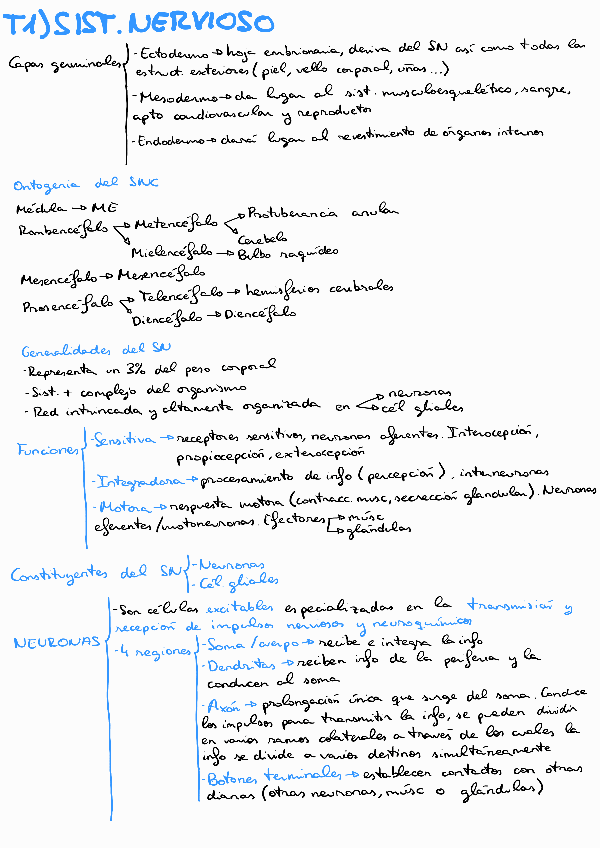 T1) SIST. NERVIOSO
Capas germinales
- Ectodermo → hoja embrionaria, deriva del SN así como todas las
estruct. exteriores (piel, vello corporal, uñas...)
- Mesodermo → da lugar al sist. musculoesquelético, sangre,
apto cardiovascular y reproductor
- Endodermo → dará lugar al revestimiento de órganos internos
Ontogenia del SNC
Médula → ME
Rombencéfalo → Metencéfalo → Protuberancia anular
Cerebelo
Mielencéfalo → Bulbo raquídeo
Mesencéfalo → Mesencéfalo
Prosencéfalo → Telencéfalo → hemisferios cerebrales
Diencéfalo → Diencéfalo
Generalidades del SN
- Representa un 3% del peso corporal
- Sist. + complejo del organismo
- Red intrincada y altamente organizada en → neuronas
→ cél gliales
Funciones
- Sensitiva → receptores sensitivos, neuronas aferentes. Interocepción,
propiocepción, exterocepción
- Integradora → procesamiento de info (percepción), interneuronas
- Motora → respuesta motora (contracc. musc, secrección glandular). Neuronas
eferentes/motoneuronas. Efectores → músc
→ glándulas
Constituyentes del SN
- Neuronas
- Cél gliales
NEURONAS
- Son células excitables especializadas en la transmisión y
recepción de impulsos nerviosos y neuroquímicos
- 4 regiones
- Soma/cuerpo → recibe e integra la info
- Dendritas → reciben info de la periferia y la
conducen al soma
- Axón → prolongación única que surge del soma. Conduce
los impulsos para transmitir la info, se pueden dividir
en varios ramos colaterales a través de los cuales la
info se divide a varios destinos simultáneamente
- Botones terminales → establecen contactos con otras
dianas (otras neuronas, músc o glándulas)